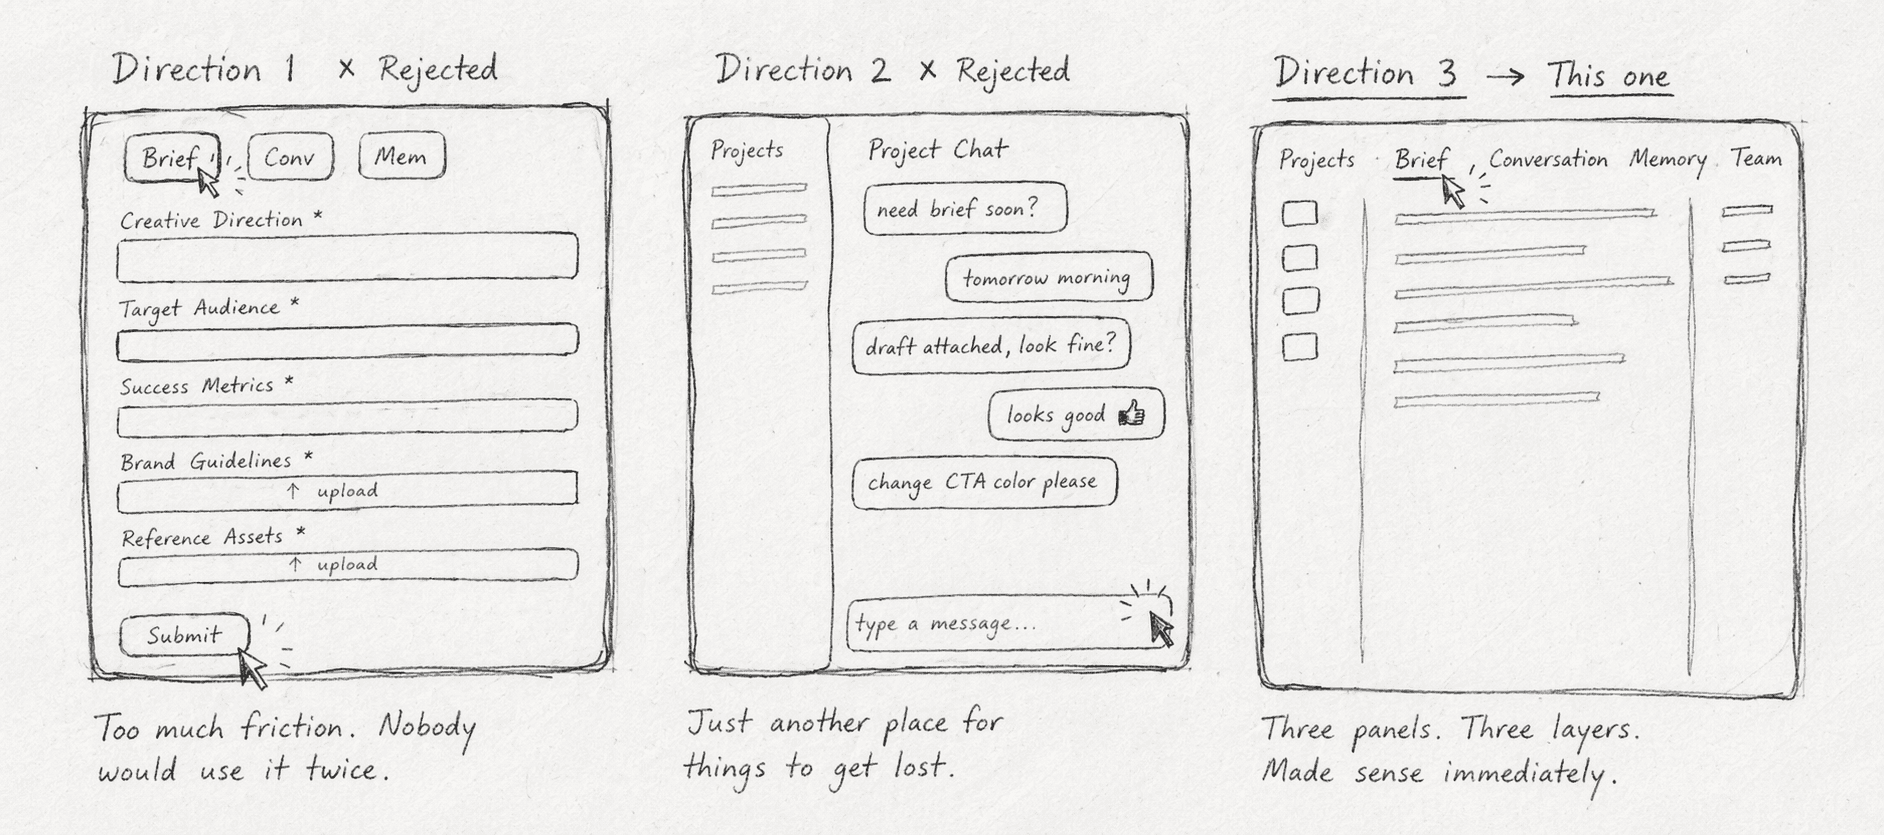 Direction 1 x Rejected
Brief Conv Mem
Creative Direction *
Target Audience *
Success Metrics *
Brand Guidelines *
↑ upload
Reference Assets *
↑ upload
Submit
Too much friction. Nobody
would use it twice.
Direction 2 x Rejected
Projects
Project Chat
need brief soon?
tomorrow morning
draft attached, look fine?
looks good 👍
change CTA color please
type a message...
Just another place for
things to get lost.
Direction 3 → This one
Projects Brief Conversation Memory Team
Three panels. Three layers.
Made sense immediately.